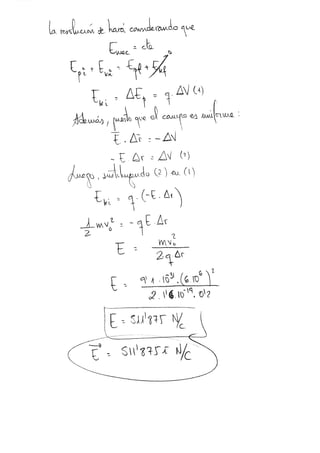 la resolución se hará considerando que
Emec = cte
Epi + Eki = Epf + Ekf 0
Eki = ΔEp = q·ΔV (1)
Además, puesto que el campo es uniforme :
E · Δr = -ΔV
- E Δr = ΔV (2)
Luego, sustituyendo (2) en (1)
Eki = q·(-E·Δr)
1/2 mv₀² = -qE Δr
E = mv₀² / 2q Δr
E = 9'1·10³¹·(6·10⁶)² / 2·1'6·10⁻¹⁹·0'2
E = 511'875 N/C
E = 511'875 i N/C